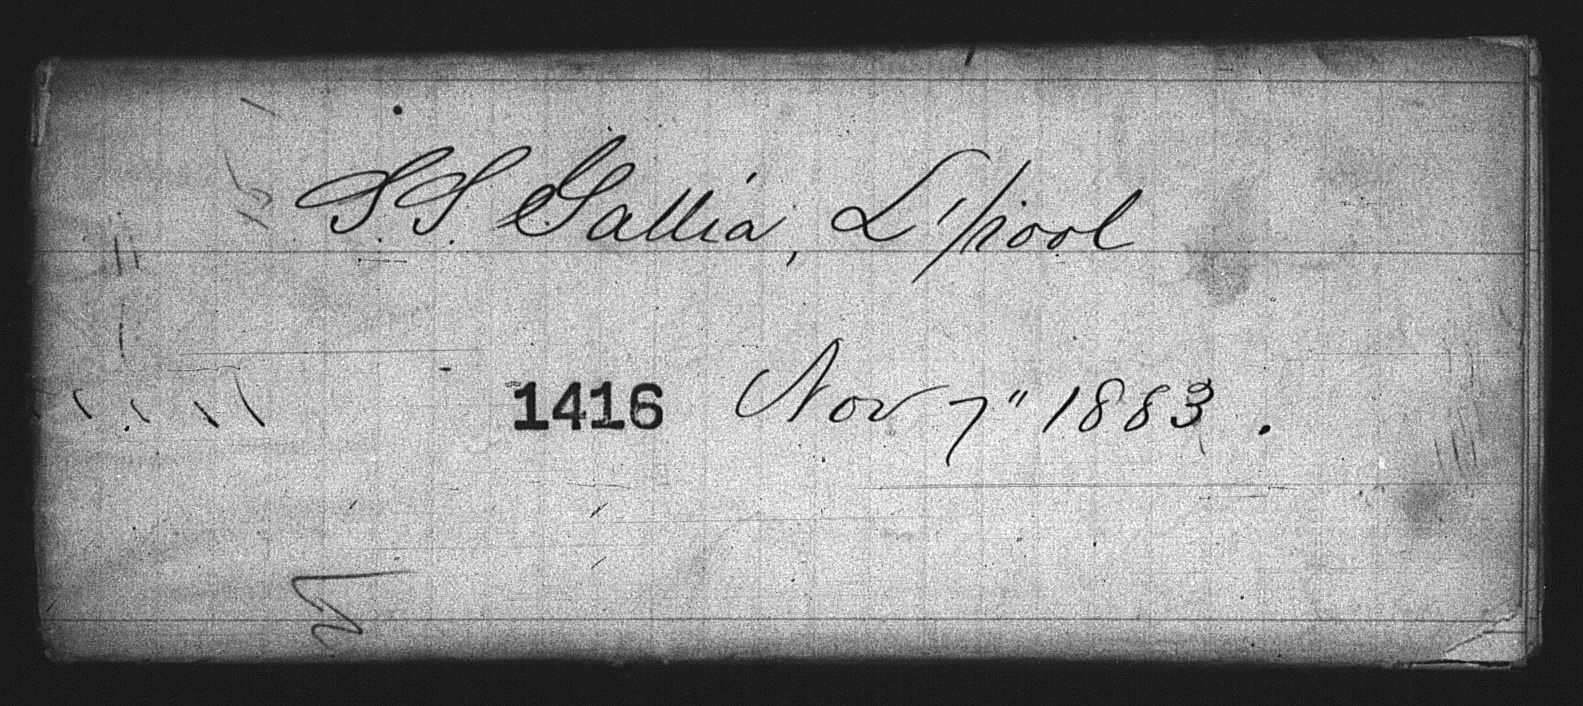 S.S. Gallia, L'pool
1416 Nov 7" 1883.